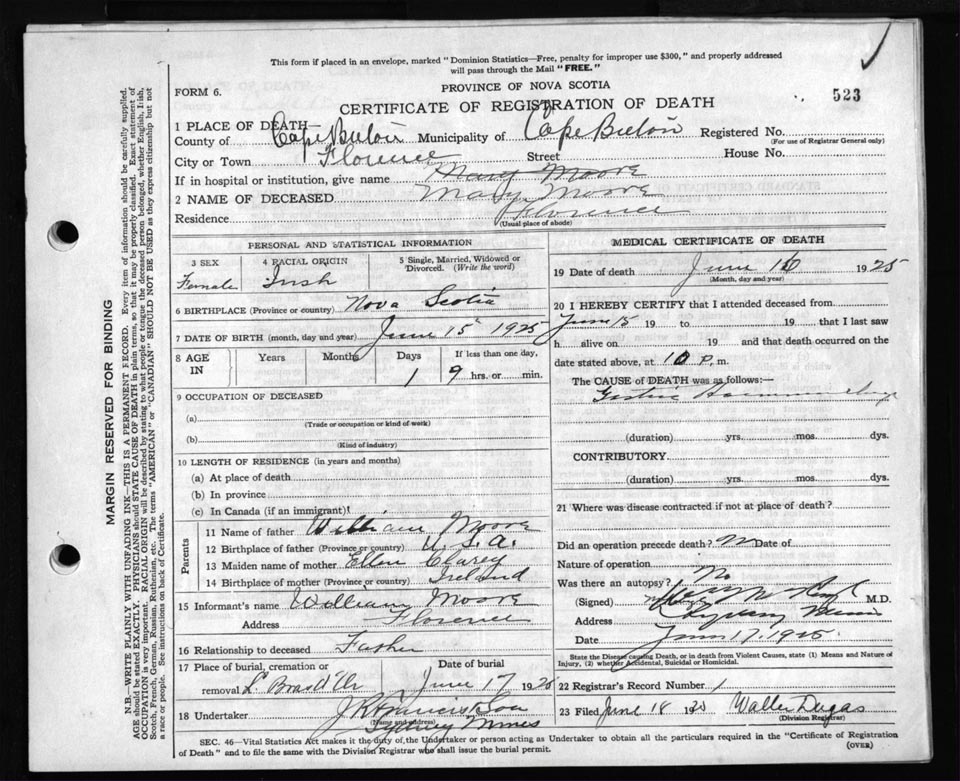 This form if placed in an envelope, marked "Dominion Statistics—Free, penalty for improper use $300," and properly addressed
will pass through the Mail "FREE."
FORM 6.
PROVINCE OF NOVA SCOTIA
CERTIFICATE OF REGISTRATION OF DEATH
523
1 PLACE OF DEATH—
County of Cape Breton Municipality of Cape Breton Registered No.
(For use of Registrar General only)
City or Town Florence Street House No.
If in hospital or institution, give name Mary Moore
2 NAME OF DECEASED Mary Moore
Residence Florence
(Usual place of abode)
PERSONAL AND STATISTICAL INFORMATION
3 SEX 4 RACIAL ORIGIN 5 Single, Married, Widowed or
Divorced. (Write the word)
Female Irish
6 BIRTHPLACE (Province or country) Nova Scotia
7 DATE OF BIRTH (month, day and year) June 15 1925
8 AGE IN Years Months Days If less than one day,
1 9 hrs. or min.
9 OCCUPATION OF DECEASED
(a)
(Trade or occupation or kind of work)
(b)
(Kind of industry)
10 LENGTH OF RESIDENCE (in years and months)
(a) At place of death
(b) In province
(c) In Canada (if an immigrant)
Parents
11 Name of father William Moore
12 Birthplace of father (Province or country) U.S.A.
13 Maiden name of mother Ellen Clary
14 Birthplace of mother (Province or country) Ireland
15 Informant's name William Moore
Address Florence
16 Relationship to deceased Father
17 Place of burial, cremation or Date of burial
removal June 17 1925
18 Undertaker
(Name and address)
Sydney Mines
MEDICAL CERTIFICATE OF DEATH
19 Date of death June 16 1925
(Month, day and year)
20 I HEREBY CERTIFY that I attended deceased from
June 15 19 to 19 that I last saw
h alive on 19 and that death occurred on the
date stated above, at 10 P.m.
The CAUSE of DEATH was as follows:—
Gastric
(duration) yrs. mos. dys.
CONTRIBUTORY
(duration) yrs. mos. dys.
21 Where was disease contracted if not at place of death?
Did an operation precede death? Date of
Nature of operation
Was there an autopsy? No
(Signed) M.D.
Address Sydney Mines
Date June 17, 1925
State the Disease causing Death, or in death from Violent Causes, state (1) Means and Nature of
Injury, (2) whether Accidental, Suicidal or Homicidal.
22 Registrar's Record Number 1
23 Filed June 18 19 Walter Dugas
(Division Registrar)
SEC. 46—Vital Statistics Act makes it the duty of the Undertaker or person acting as Undertaker to obtain all the particulars required in the "Certificate of Registration
of Death" and to file the same with the Division Registrar who shall issue the burial permit. (OVER)
MARGIN RESERVED FOR BINDING
N.B.—WRITE PLAINLY WITH UNFADING INK—THIS IS A PERMANENT RECORD. Every item of information should be carefully supplied.
AGE should be stated EXACTLY. PHYSICIANS should STATE CAUSE OF DEATH in plain terms, so that it may be properly classified. Exact statement of
OCCUPATION is very important. RACIAL ORIGIN will be described by stating to what people or tongue the deceased person belonged, whether English, Irish,
Scotch, French, German, Russian, Ruthenian, etc. The terms "AMERICAN" or "CANADIAN" SHOULD NOT BE USED as they express citizenship but not
a race or people. See instructions on back of Certificate.